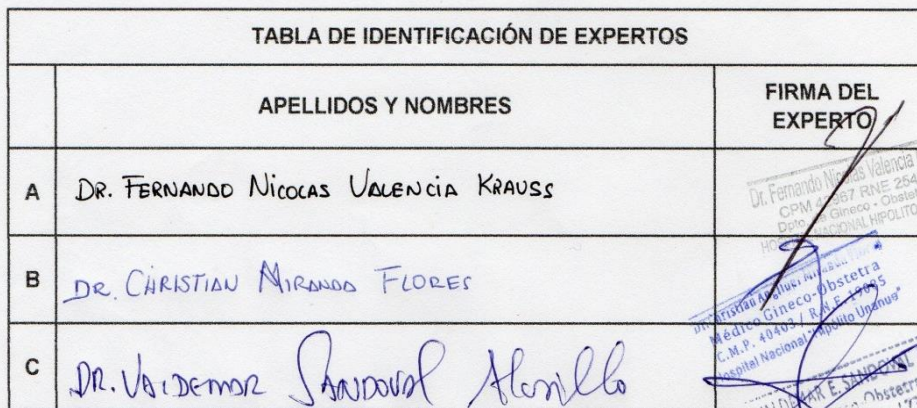 TABLA DE IDENTIFICACIÓN DE EXPERTOS
APELLIDOS Y NOMBRES
FIRMA DEL
EXPERTO
A
DR. FERNANDO NICOLAS VALENCIA KRAUSS
Dr. Fernando Nicolas Valencia
CPM RNE 254
Dpto. Gineco - Obste
NACIONAL HIPOLITO
B
DR. CHRISTIAN MIRANDA FLORES
Médico Gineco-Obstetra
C.M.P. 40403 / R.N.E. 19095
Hospital Nacional "Hipolito Unanue"
C
DR. VALDEMAR SANDOVAL
AR E. SANDOVAL
Obstetr